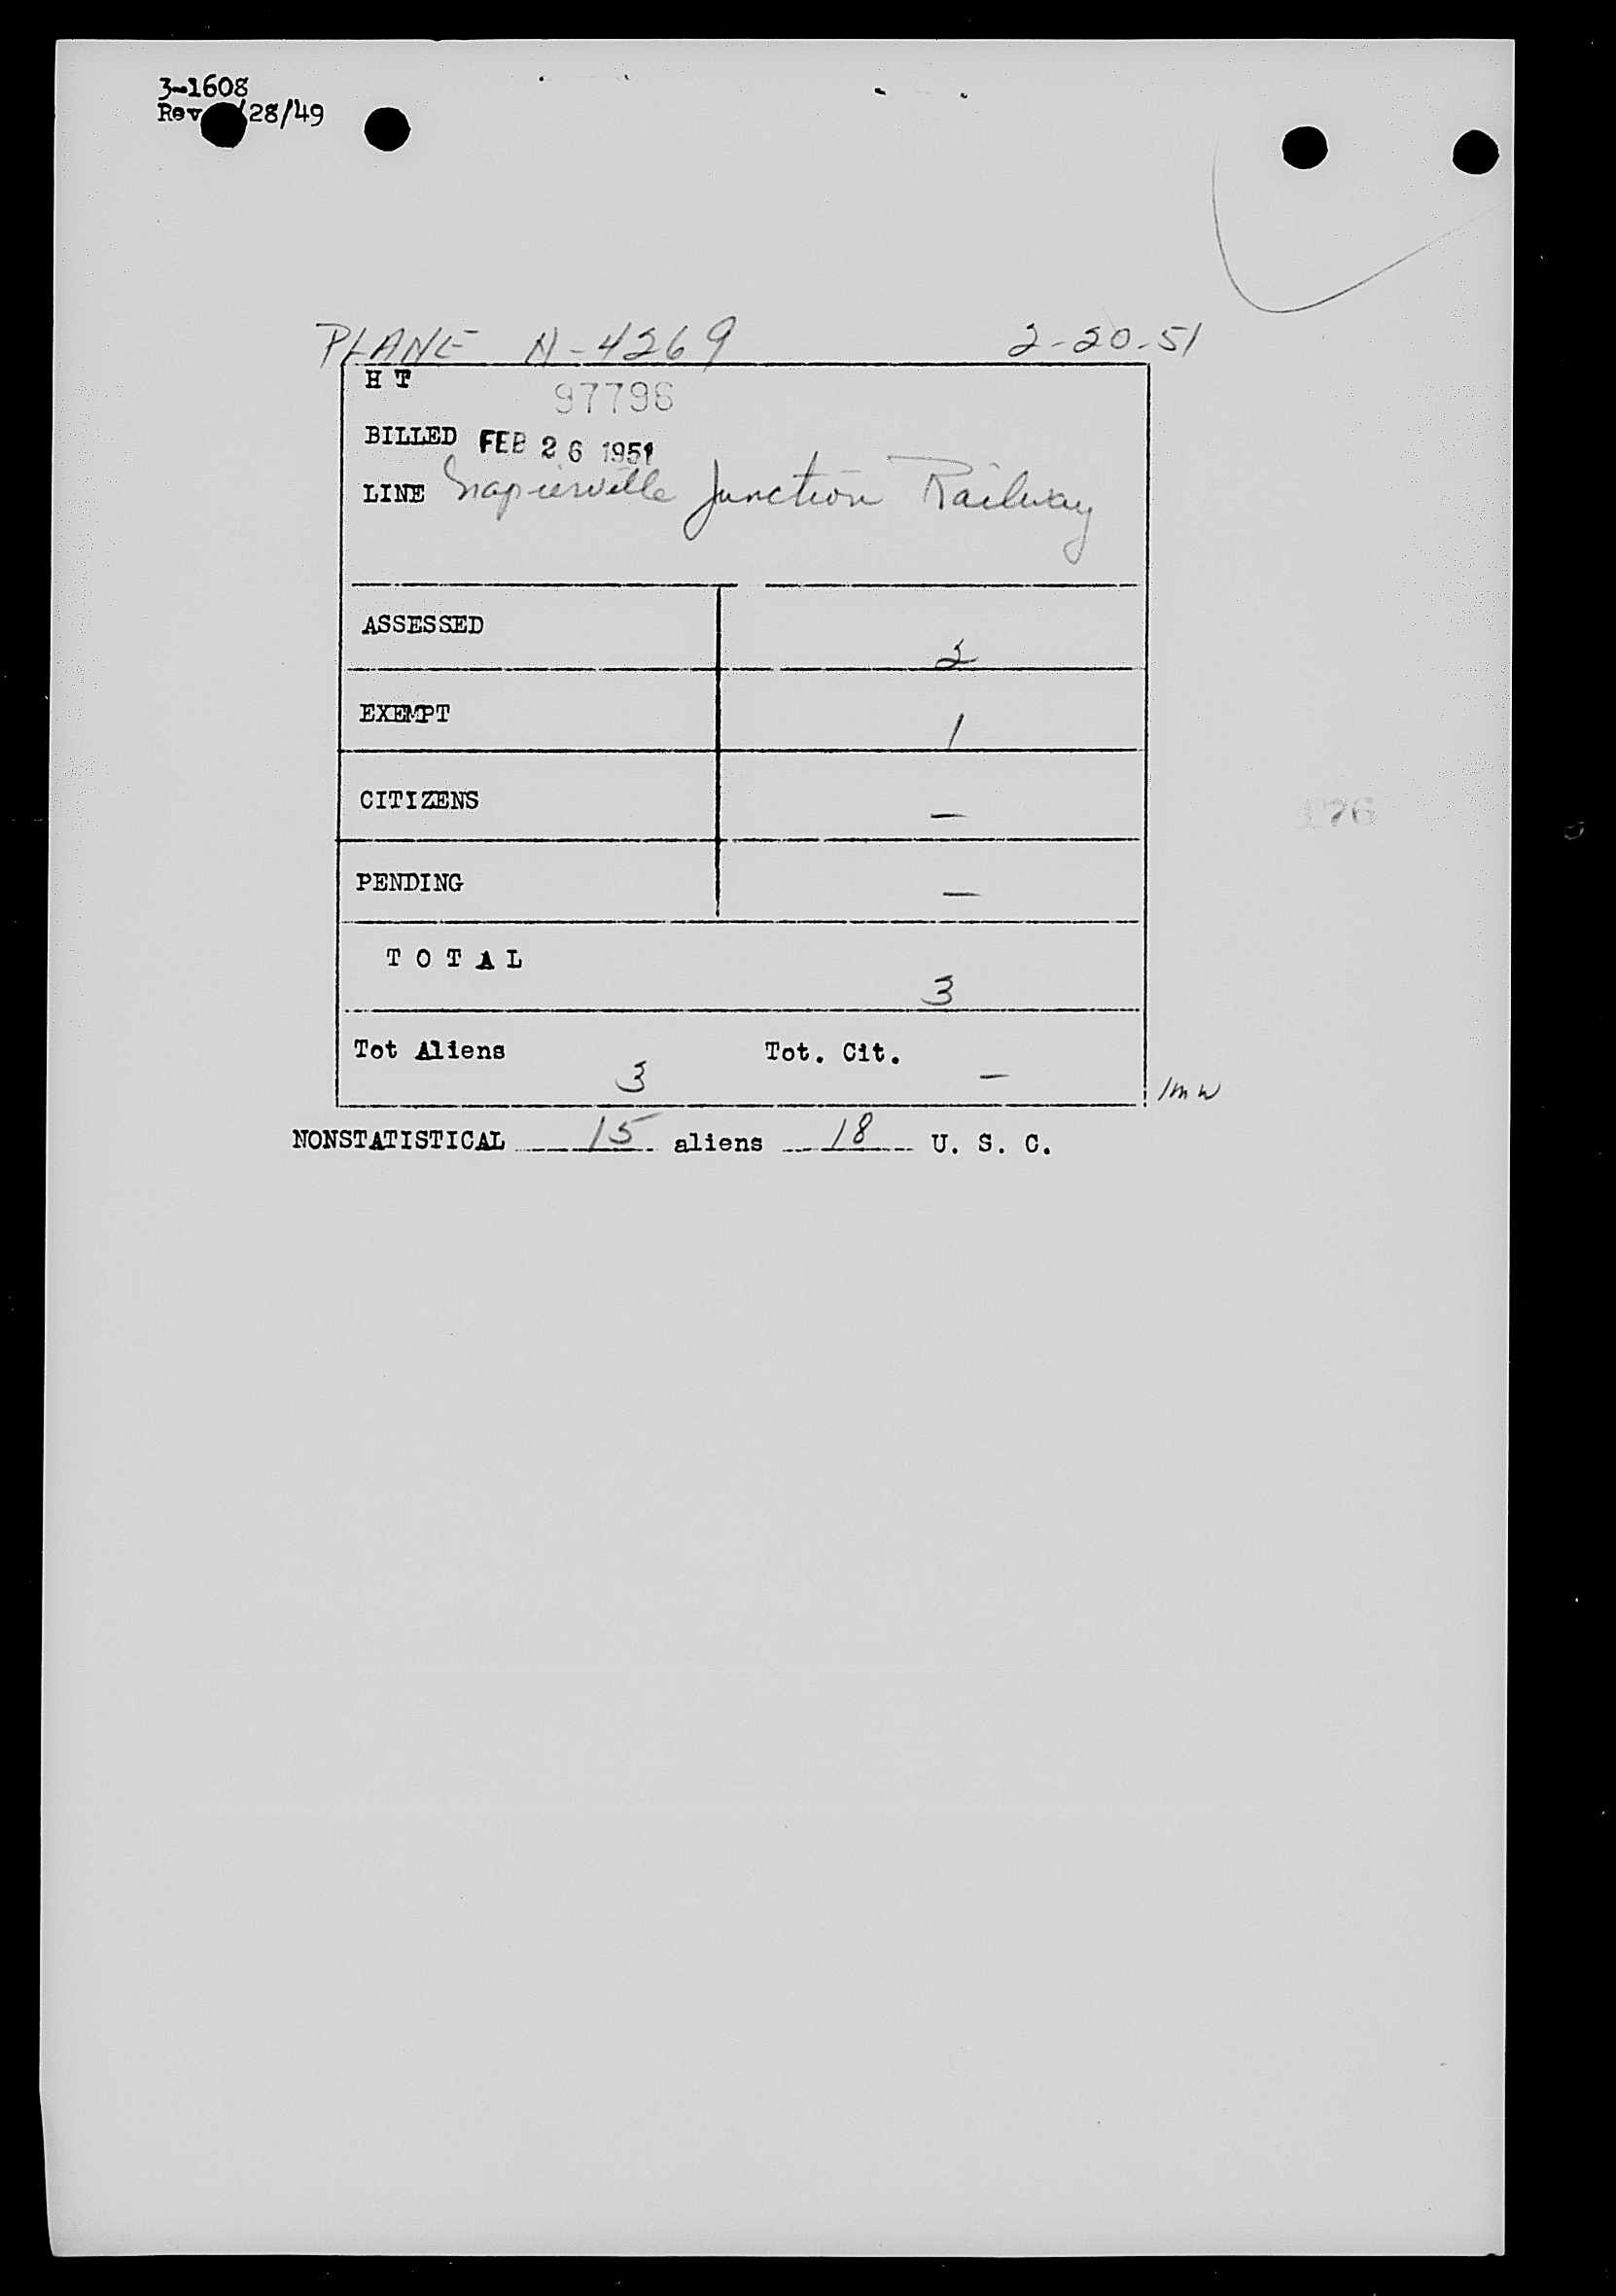 3-1608
Rev /28/49
PLANE N-4269 2-20-51
H T
97796
BILLED FEB 26 1951
LINE Napierville Junction Railway
ASSESSED 2
EXEMPT 1
CITIZENS —
176
PENDING —
T O T A L 3
Tot Aliens 3 Tot. Cit. —
NONSTATISTICAL 15 aliens 18 U. S. C.